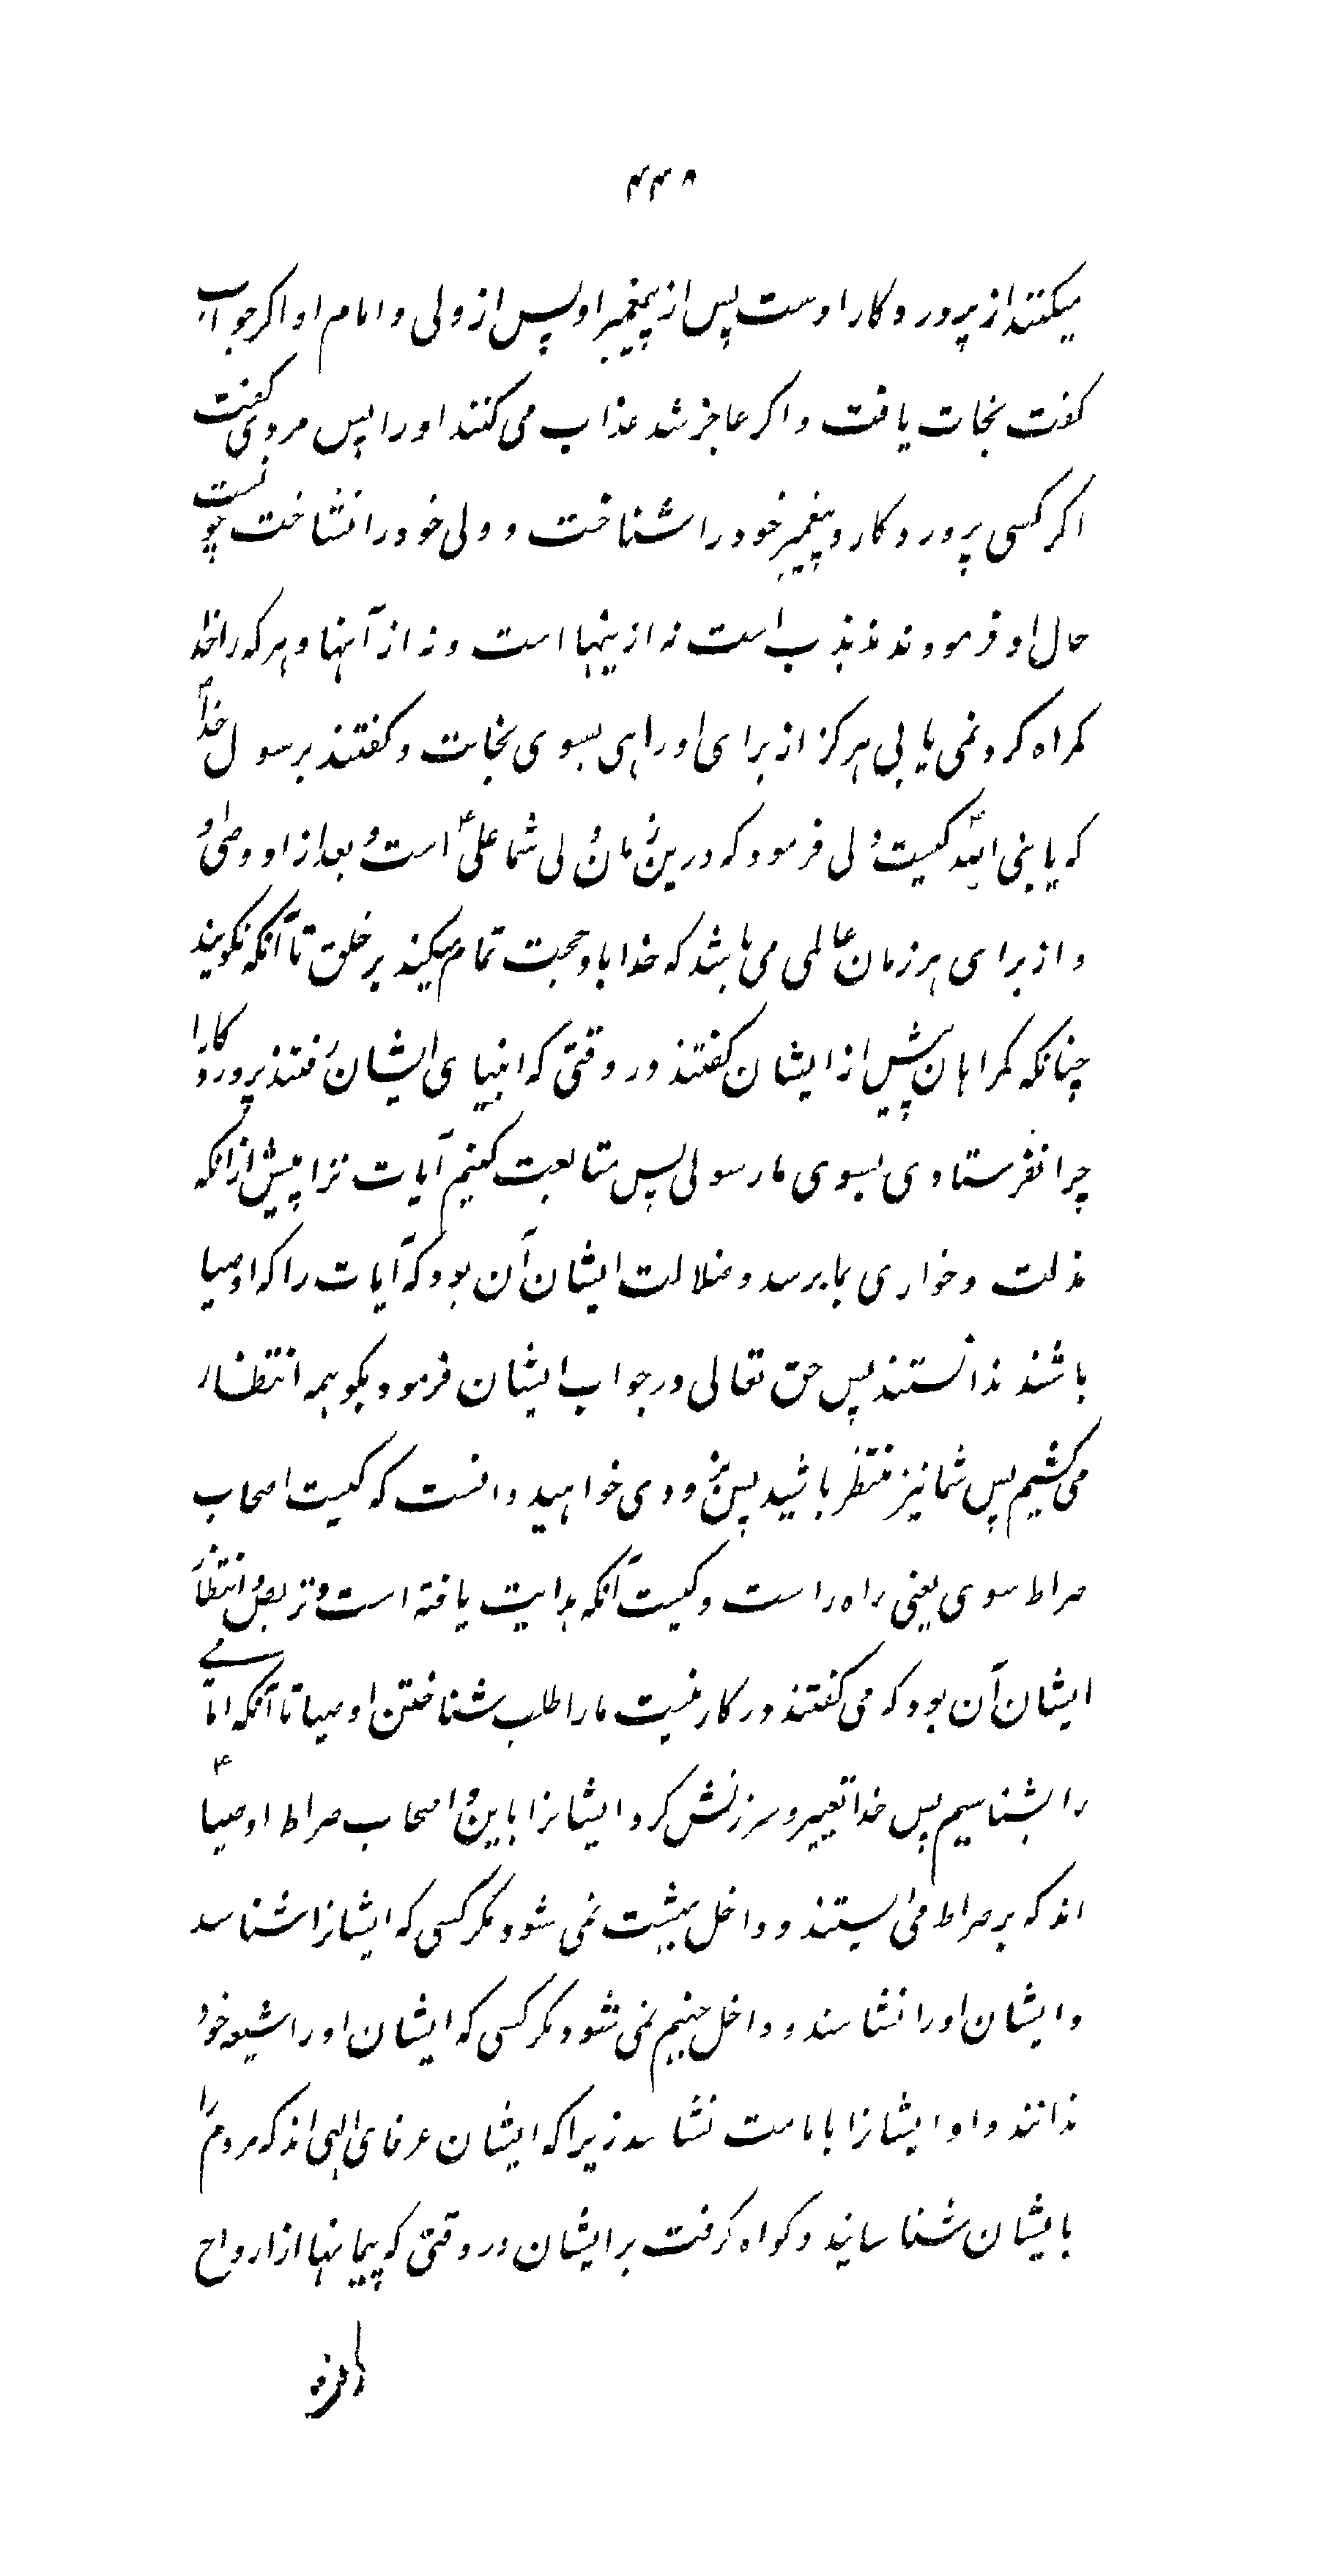 ۴۴۸
میکنند از پروردکار اوست پس از پیغمبر او پس از ولی و امام او اکر جواب
کفت نجات یافت و اکر عاجز شد عذاب می کنند او را پس مردی کفت
اکر کسی پروردکار و پیغمبر خود را شناخت و ولی خود را نشناخت چونست
حال او فرمودند مذبذب است نه ازینها است و نه از آنها و هر که را خدا
کمراه کرد نمی یابی هرکز از برای او راهی بسوی نجات و کفتند برسول خدا ص
که یا نبی الله کیست ولی فرمود که درین زمان ولی شما علی ع است و بعد از او وصی او
و از برای هر زمان عالمی می باشد که خدا باو حجت تمام میکند بر خلق تا آنکه نکویند
چنانکه کمراهان پیش از ایشان کفتند در وقتی که انبیای ایشان رفتند پروردکارا
چرا نفرستادی بسوی ما رسولی پس متابعت کنیم آیات ترا پیش ازانکه
مذلت و خواری بما برسد و ضلالت ایشان آن بود که آیات را که اوصیا
باشند ندانستند پس حق تعالی در جواب ایشان فرمود بکو همه انتظار
می کشیم پس شما نیز منتظر باشید پس زودی خواهید دانست که کیست اصحاب
صراط سوی یعنی راه راست و کیست آنکه هدایت یافته است و تربص و انتظار
ایشان آن بود که می کفتند در کار نیست ما را طلب شناختن اوصیا تا آنکه امامی
را بشناسیم پس خدا تعییر و سرزنش کرد ایشانرا باین و اصحاب صراط اوصیا ع
اند که بر صراط می ایستند و داخل بهشت نمی شود مکر کسی که ایشانرا شناسد
و ایشان او را نشناسند و داخل جهنم نمی شود مکر کسی که ایشان او را شیعه خود
ندانند و او ایشانرا بامامت نشناسد زیرا که ایشان عرفای الهی اند که مردم را
بایشان شناسانید و کواه کرفت بر ایشان در وقتی که پیمانها از ارواح